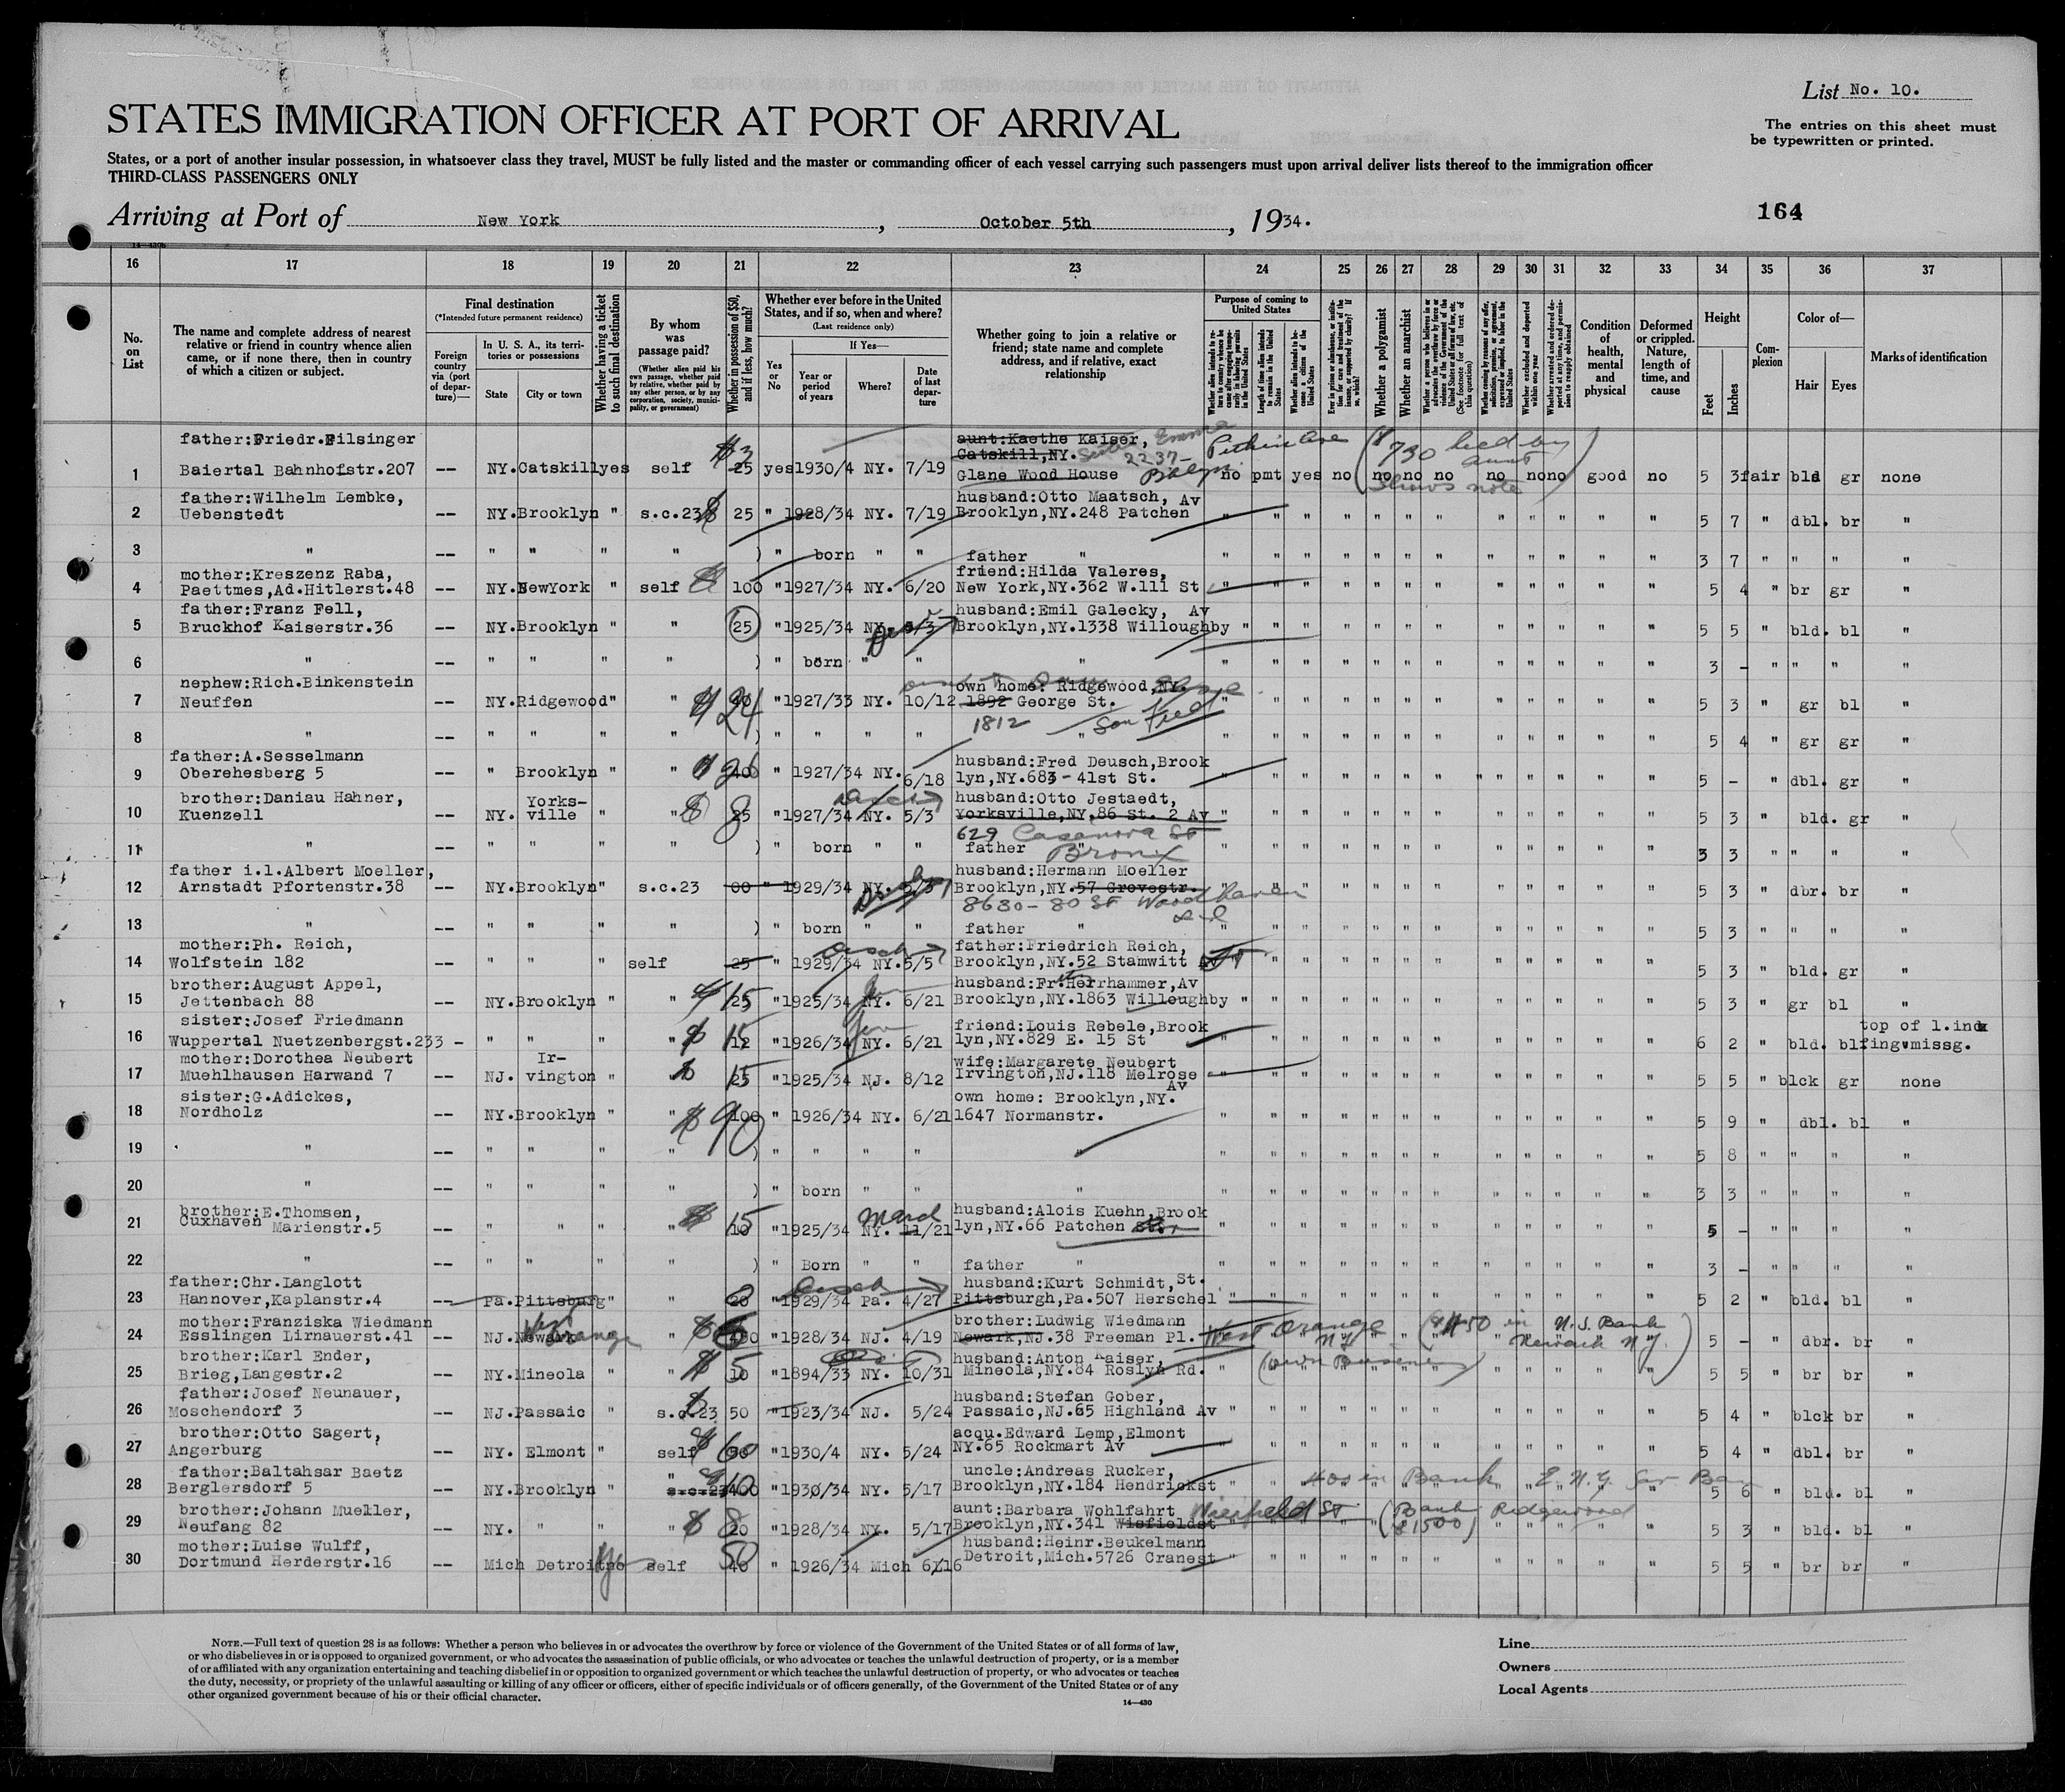 List No. 10.
STATES IMMIGRATION OFFICER AT PORT OF ARRIVAL
The entries on this sheet must
be typewritten or printed.
States, or a port of another insular possession, in whatsoever class they travel, MUST be fully listed and the master or commanding officer of each vessel carrying such passengers must upon arrival deliver lists thereof to the immigration officer
THIRD-CLASS PASSENGERS ONLY
Arriving at Port of New York, October 5th, 1934.
164
16 17 18 19 20 21 22 23 24 25 26 27 28 29 30 31 32 33 34 35 36 37
No. on List
The name and complete address of nearest relative or friend in country whence alien came, or if none there, then in country of which a citizen or subject.
Final destination
(*Intended future permanent residence)
Foreign country via (port of departure)—
In U. S. A., its territories or possessions
State
City or town
Whether having a ticket to such final destination
By whom was passage paid?
(Whether alien paid his own passage, whether paid by relative, whether paid by any other person, or by any corporation, society, municipality, or government)
Whether in possession of $50, and if less, how much?
Whether ever before in the United States, and if so, when and where?
(Last residence only)
Yes or No
If Yes—
Year or period of years
Where?
Date of last departure
Whether going to join a relative or friend; state name and complete address, and if relative, exact relationship
Purpose of coming to United States
Whether a polygamist
Whether an anarchist
Condition of health, mental and physical
Deformed or crippled. Nature, length of time, and cause
Height
Feet
Inches
Complexion
Color of—
Hair
Eyes
Marks of identification
father:Friedr.Filsinger aunt:Kaethe Kaiser, Emma Pitkin Ave
Catskill,NY. Sister 2237-
1 Baiertal Bahnhofstr.207 -- NY.Catskill yes self 25 yes 1930/4 NY. 7/19 Glane Wood House Bklyn no pmt yes no no no no no no no good no 5 3 fair bld gr none
($730 held by aunt shows note)
father:Wilhelm Lembke, husband:Otto Maatsch, Av
2 Uebenstedt -- NY.Brooklyn " s.c.23 25 " 1928/34 NY. 7/19 Brooklyn,NY.248 Patchen 5 7 " dbl. br "
3 " -- " " " " ) " born " " father " 3 7 " " " "
mother:Kreszenz Raba, friend:Hilda Valeres,
4 Paettmes,Ad.Hitlerst.48 -- NY.NewYork " self 100 "1927/34 NY. 6/20 New York,NY.362 W.111 St 5 4 " br gr "
father:Franz Fell, husband:Emil Galecky, Av
5 Bruckhof Kaiserstr.36 -- NY.Brooklyn " " 25 "1925/34 NY. 5/3 Brooklyn,NY.1338 Willoughby 5 5 " bld. bl "
6 " -- " " " " ) " born " " " 3 - " " " "
nephew:Rich.Binkenstein own home: Ridgewood,NY.
7 Neuffen -- NY.Ridgewood " " 24 "1927/33 NY. 10/12 1892 George St. 5 3 " gr bl "
1812 Son Fred
8 " -- " " " " ) " " " " " 5 4 " gr gr "
father:A.Sesselmann husband:Fred Deusch,Brook
9 Oberehesberg 5 -- " Brooklyn " " " 1927/34 NY. 6/18 lyn,NY.683-41st St. 5 - " dbl. gr "
brother:Daniau Hahner, Yorks- husband:Otto Jestaedt,
10 Kuenzell -- NY. ville " " 8 25 "1927/34 NY. 5/3 Yorksville,NY.86 St. 2 Av 5 3 " bld. gr "
629 Casanova St
11 " -- " " " " ) " born " " father " Bronx 3 3 " " " "
father i.l.Albert Moeller, husband:Hermann Moeller
12 Arnstadt Pfortenstr.38 -- NY.Brooklyn " s.c.23 00 " 1929/34 NY. 5/3 Brooklyn,NY.57 Grovestr. 5 3 " dbr. br "
8630-80 St Woodhaven
L-I
13 " -- " " " " ) " born " " father " 5 3 " " " "
mother:Ph. Reich, father:Friedrich Reich,
14 Wolfstein 182 -- " " " self 25 " 1929/34 NY.5/5 Brooklyn,NY.52 Stamwitt 5 3 " bld. gr "
brother:August Appel, husband:Fr.Herrhammer,Av
15 Jettenbach 88 -- NY.Brooklyn " " $15 25 "1925/34 NY. 6/21 Brooklyn,NY.1863 Willoughby " 5 3 " gr bl "
sister:Josef Friedmann friend:Louis Rebele,Brook top of l.ind
16 Wuppertal Nuetzenbergst.233 - " " " " $15 12 "1926/34 NY. 6/21 lyn,NY.829 E. 15 St 6 2 " bld. bl fing.missg.
mother:Dorothea Neubert Ir- wife:Margarete Neubert
17 Muehlhausen Harwand 7 -- NJ. vington " " 15 25 "1925/34 NJ. 8/12 Irvington,NJ.118 Melrose Av 5 5 " blck gr none
sister:G.Adickes, own home: Brooklyn,NY.
18 Nordholz -- NY.Brooklyn " " $90 100 " 1926/34 NY. 6/21 1647 Normanstr. 5 9 " dbl. bl "
19 " -- " " " " ) " " " " " 5 8 " " " "
20 " -- " " " " ) " born " " " 3 3 " " " "
brother:E.Thomsen, March husband:Alois Kuehn,Brook
21 Cuxhaven Marienstr.5 -- " " " $15 10 "1925/34 NY. 11/21 lyn,NY.66 Patchen 5 - " " " "
22 " -- " " " " ) " Born " " father " 3 - " " " "
father:Chr.Langlott husband:Kurt Schmidt,St.
23 Hannover,Kaplanstr.4 -- Pa.Pittsburg " " 20 "1929/34 Pa. 4/27 Pittsburgh,Pa.507 Herschel 5 2 " bld. bl "
mother:Franziska Wiedmann West Orange brother:Ludwig Wiedmann
24 Esslingen Lirnauerst.41 -- NJ.Newark " "1928/34 NJ. 4/19 Newark,NJ.38 Freeman Pl. West Orange NJ ( in N.S. Bank Newark N.J.) 5 - " dbr. br "
brother:Karl Ender, husband:Anton Kaiser,
25 Brieg,Langestr.2 -- NY.Mineola " " $5 10 "1894/33 NY. 10/31 Mineola,NY.84 Roslyn Rd. (own Business) 5 5 " br br "
father:Josef Neunauer, husband:Stefan Gober,
26 Moschendorf 3 -- NJ.Passaic " s.c.23 50 "1923/34 NJ. 5/24 Passaic,NJ.65 Highland Av 5 4 " blck br "
brother:Otto Sagert, acqu.Edward Lemp,Elmont
27 Angerburg -- NY. Elmont " self $60 "1930/4 NY. 5/24 NY.65 Rockmart Av 5 4 " dbl. br "
father:Baltahsar Baetz uncle:Andreas Rucker,
28 Berglersdorf 5 -- NY.Brooklyn " s.c.23 "1930/34 NY. 5/17 Brooklyn,NY.184 Hendrickst 400 in Bank E.N.Y. Sav Bank 5 6 " bld. bl "
brother:Johann Mueller, aunt:Barbara Wohlfahrt Wierfield St (Bank $1500) Ridgewood
29 Neufang 82 -- NY. " " " $8 20 "1928/34 NY. 5/17 Brooklyn,NY.341 Wiefieldst 5 3 " bld. bl "
mother:Luise Wulff, 50 husband:Heinr.Beukelmann
30 Dortmund Herderstr.16 -- Mich Detroit no self 40 " 1926/34 Mich 6/16 Detroit,Mich.5726 Cranest 5 5 " br br "
NOTE.—Full text of question 28 is as follows: Whether a person who believes in or advocates the overthrow by force or violence of the Government of the United States or of all forms of law,
or who disbelieves in or is opposed to organized government, or who advocates the assassination of public officials, or who advocates or teaches the unlawful destruction of property, or is a member
of or affiliated with any organization entertaining and teaching disbelief in or opposition to organized government or which teaches the unlawful destruction of property, or who advocates or teaches
the duty, necessity, or propriety of the unlawful assaulting or killing of any officer or officers, either of specific individuals or of officers generally, of the Government of the United States or of any
other organized government because of his or their official character.
14—430
Line
Owners
Local Agents